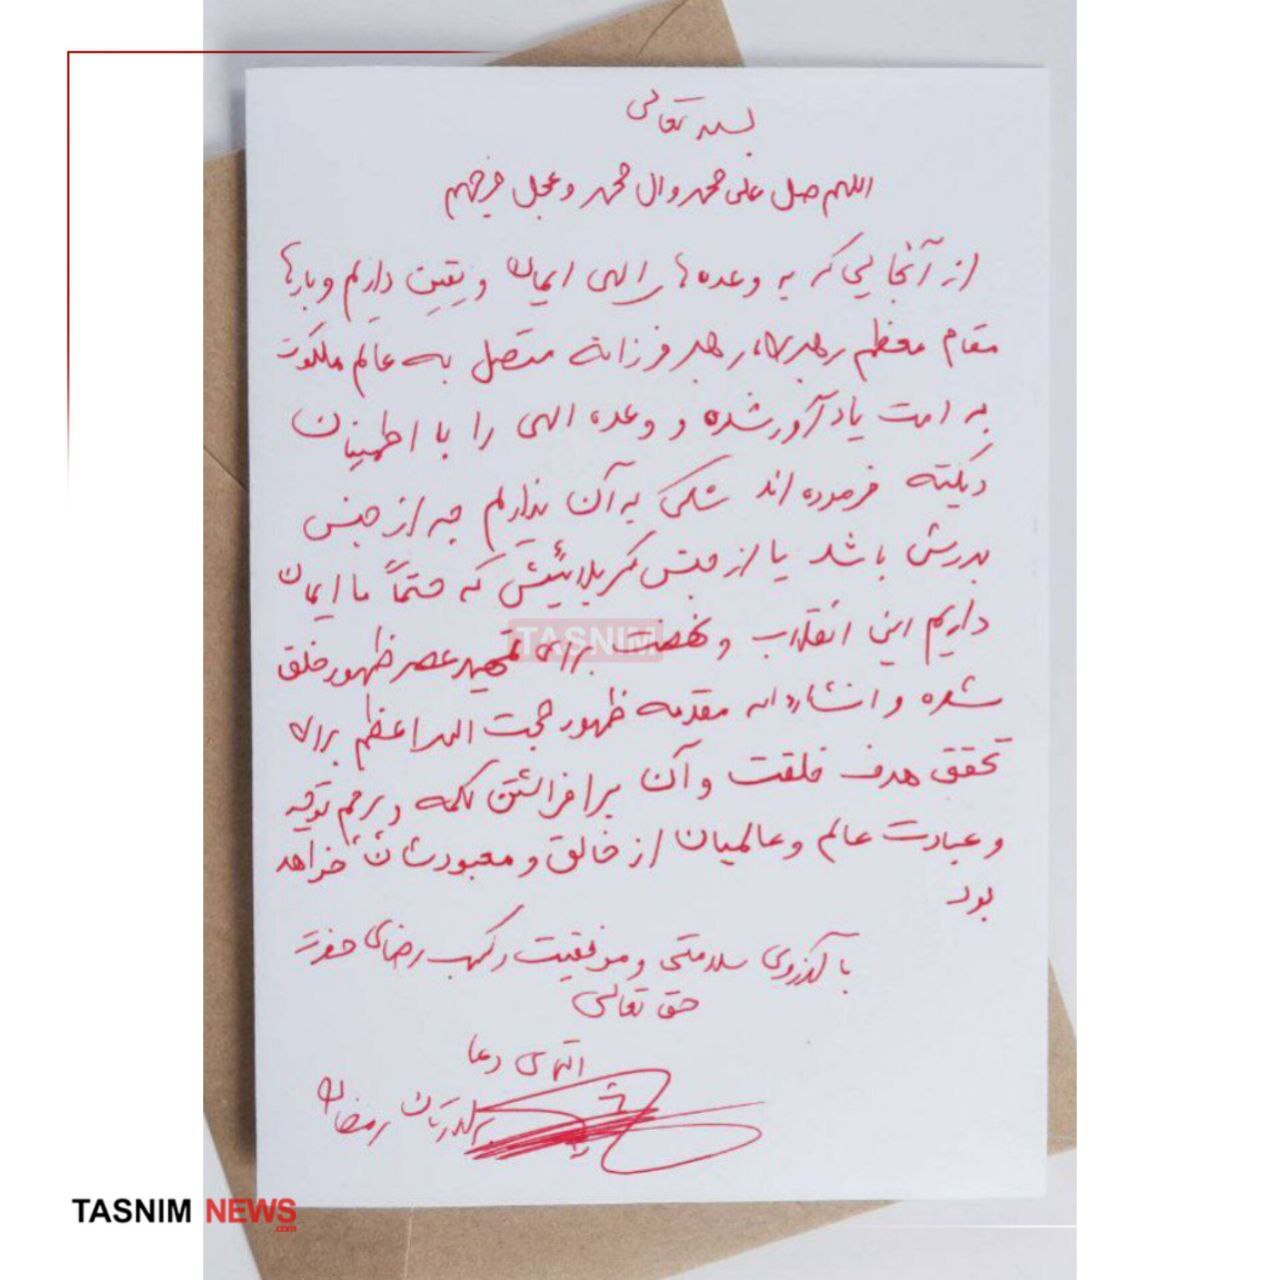 بسمه تعالی
اللهم صل علی محمد وال محمد و عجل فرجهم
از آنجایی که به وعده های الهی ایمان و یقین داریم و بارها
مقام معظم رهبری، رهبر فرزانه متصل به عالم ملکوت
به امت یادآور شده و وعده الهی را با اطمینان
دیکته فرموده اند شکی به آن نداریم چه از جنس
بدرش باشد یا از جنس کربلائیش که حتماً ما ایمان
داریم این انقلاب و نهضت برای تمهید عصر ظهور خلق
شده و انشاءالله مقدمه ظهور حجت الله اعظم برای
تحقق هدف خلقت و آن برافراشتن کلمه و پرچم توحید
و عبادت عالم و عالمیان از خالق و معبودشان خواهد
بود
با آرزوی سلامتی و موفقیت و کسب رضای حضرت
حق تعالی
التماس دعا
برادرتان رمضان
TASNIM
TASNIM NEWS
.com